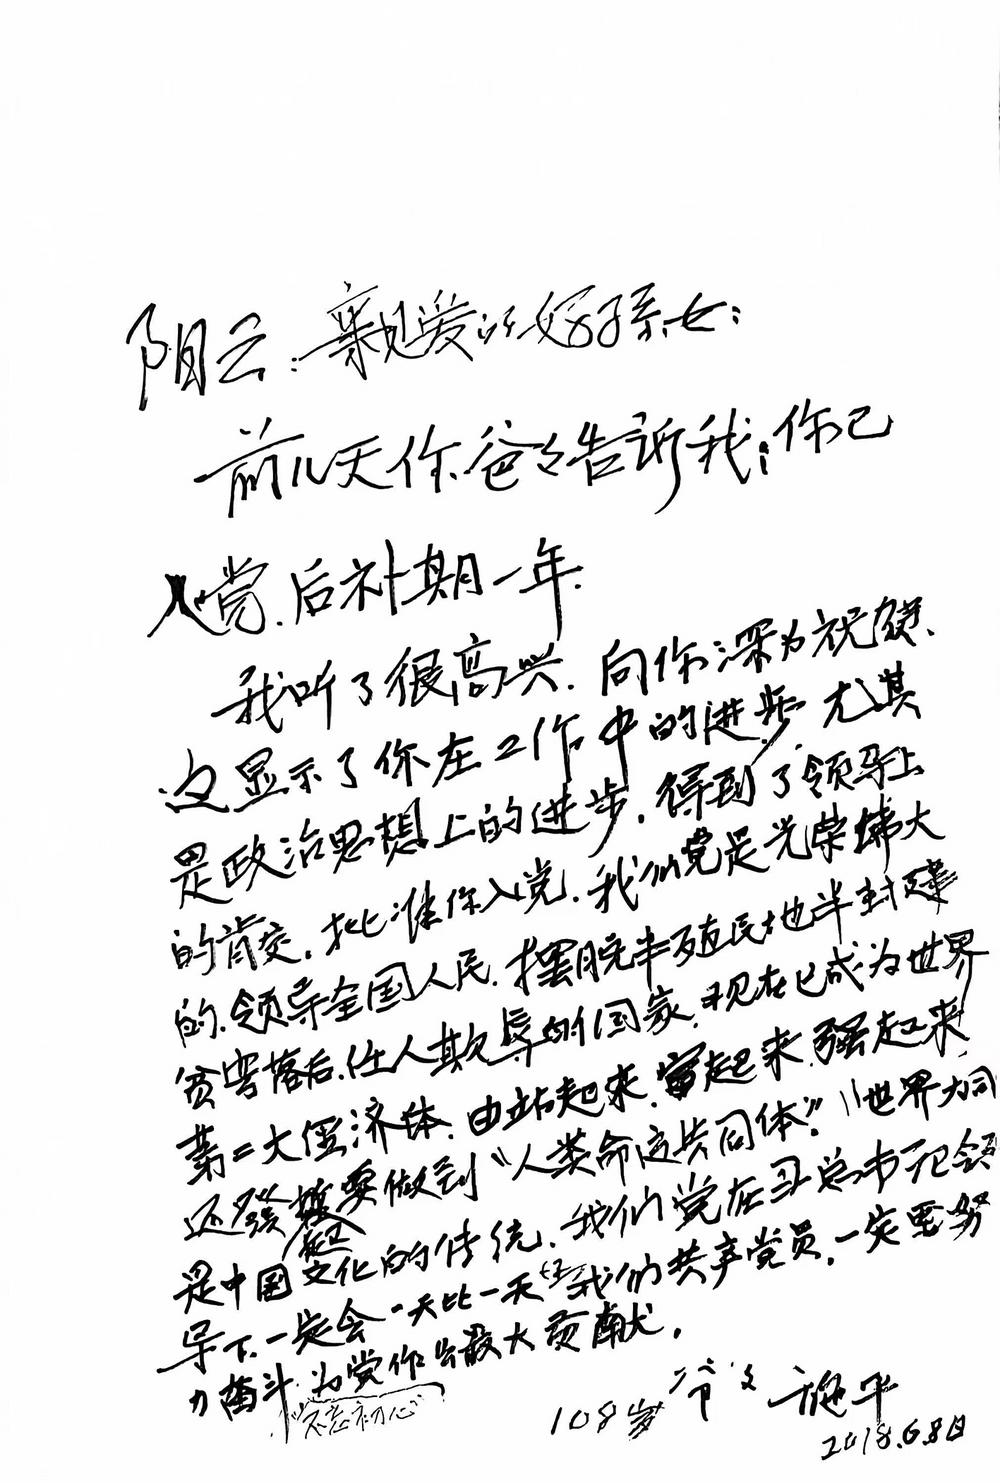 阳云：亲爱的好孙女：
前几天你爸爸告诉我：你已
入党.后补期一年.
我听了很高兴.向你深为祝贺、
这显示了你在工作中的进步尤其
是政治思想上的进步.得到了领导上
的肯定.批准你入党.我们党是光荣伟大
的.领导全国人民.摆脱半殖民地半封建
贫穷落后.任人欺辱的国家.现在已成为世界
第二大经济体.由站起来.富起来.强起来
还发起要做到“人类命运共同体”.“世界大同
是中国文化的传统.我们党在习总书记领
导下.一定会一天比一天好我们共产党员.一定要努
力奋斗.为党作出最大贡献.
“不忘初心”
108岁爷爷 施平
2018.6.8日